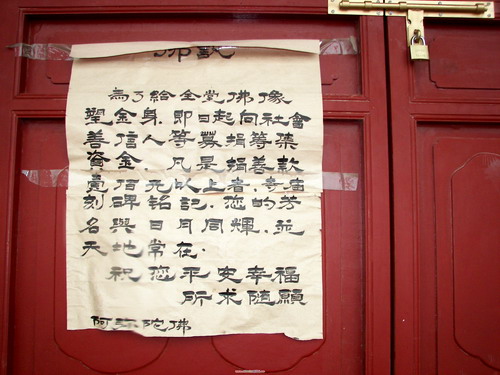 為了給全堂佛像
塑金身,即日起向社會
善信人等募捐筹集
資金,凡是捐善款
壹佰元以上者,寺庙
刻碑铭記,您的芳
名與日月同輝,並
天地常在.
祝您平安幸福
所求随願
阿弥陀佛